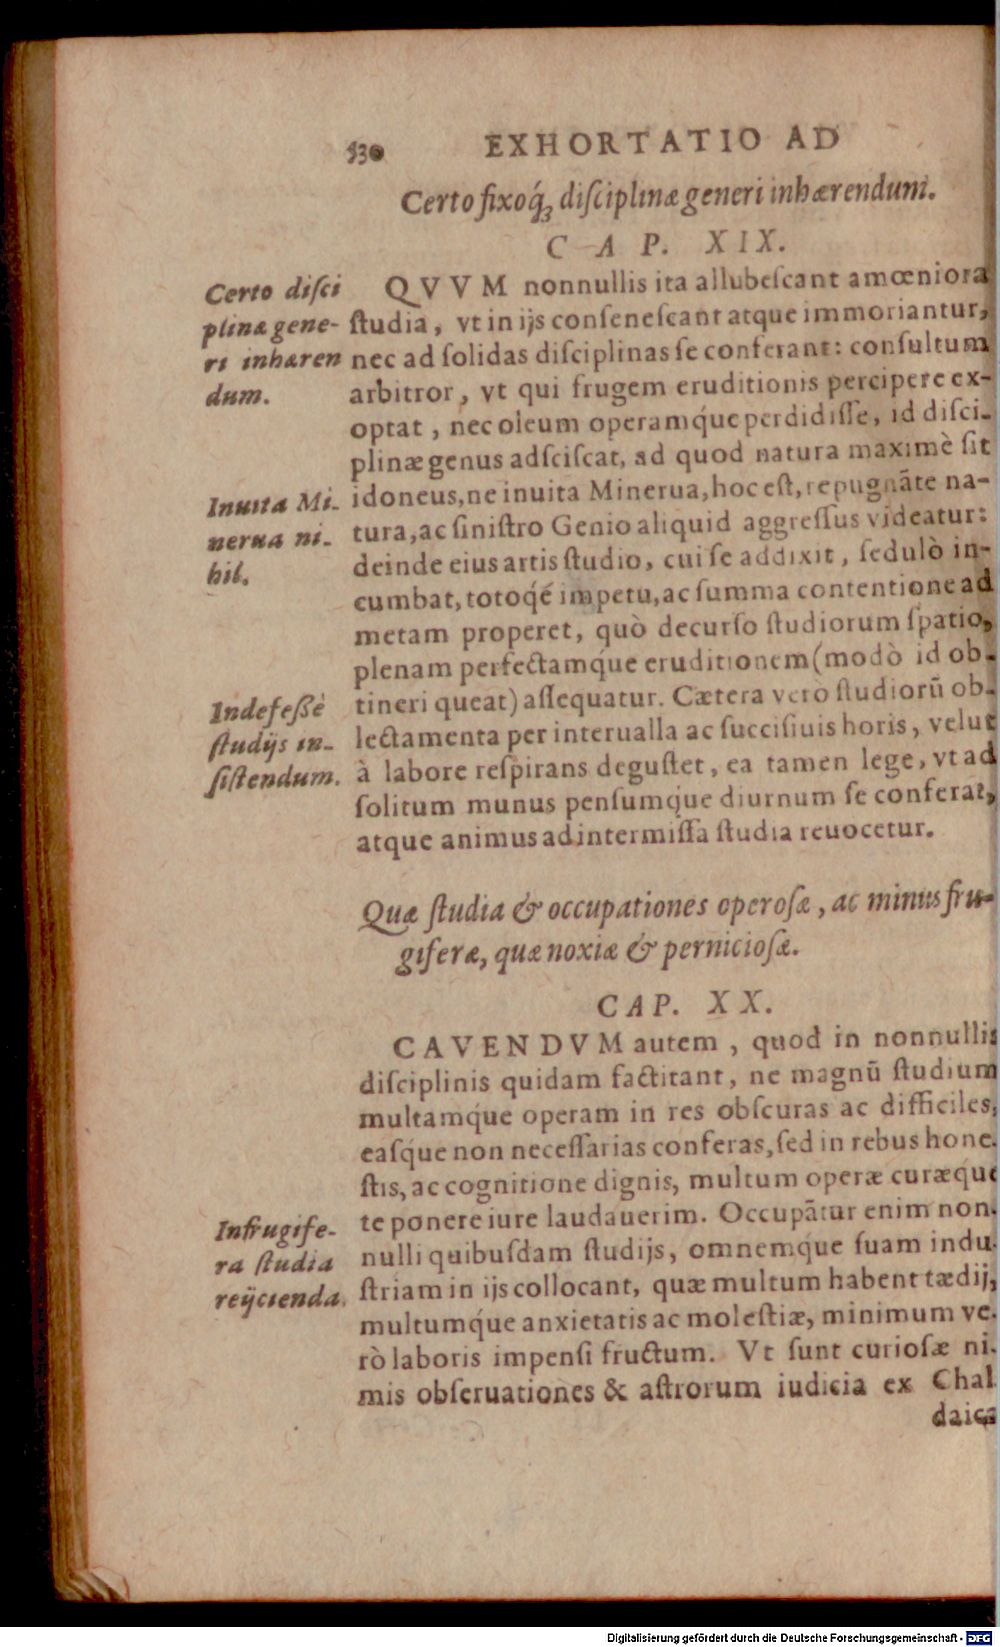 530 EXHORTATIO AD
Certo fixoq́ꝫ diſciplinæ generi inhærendum.
C A P. XIX.
Certo diſci
plinæ gene-
ri inhæren
dum.
QVVM nonnullis ita allubeſcant amœniora
ſtudia, vt in ijs conſeneſcant atque immoriantur,
nec ad ſolidas diſciplinas ſe conferant: conſultum
arbitror, vt qui frugem eruditionis percipere ex-
optat, nec oleum operamq́ue perdidiſſe, id diſci-
plinæ genus adſciſcat, ad quod natura maximè ſit
Inuita Mi-
nerua ni-
hil.
idoneus, ne inuita Minerua, hoc eſt, repugnãte na-
tura, ac ſiniſtro Genio aliquid aggreſſus videatur:
deinde eius artis ſtudio, cui ſe addixit, ſedulò in-
cumbat, totoq́; impetu, ac ſumma contentione ad
metam properet, quò decurſo ſtudiorum ſpatio,
plenam perfectamq́ue eruditionem (modò id ob-
Indefeßè
ſtudijs in-
ſiſtendum.
tineri queat) aſſequatur. Cætera verò ſtudiorũ ob-
lectamenta per interualla ac ſucciſiuis horis, velut
à labore reſpirans deguſtet, ea tamen lege, vt ad
ſolitum munus penſumq́ue diurnum ſe conferat,
atque animus ad intermiſſa ſtudia reuocetur.
Quæ ſtudia & occupationes operoſæ, ac minus fru-
giferæ, quæ noxiæ & pernicioſæ.
CAP. XX.
CAVENDVM autem, quod in nonnullis
diſciplinis quidam factitant, ne magnũ ſtudium
multamq́ue operam in res obſcuras ac difficiles,
eaſq́ue non neceſſarias conferas, ſed in rebus hone-
ſtis, ac cognitione dignis, multum operæ curæque
Infrugife-
ra ſtudia
reijcienda.
te ponere iure laudauerim. Occupãtur enim non-
nulli quibuſdam ſtudijs, omnemq́ue ſuam indu-
ſtriam in ijs collocant, quæ multum habent tædij,
multumq́ue anxietatis ac moleſtiæ, minimum ve-
rò laboris impenſi fructum. Vt ſunt curioſæ ni-
mis obſeruationes & aſtrorum iudicia ex Chal
daica
Digitalisierung gefördert durch die Deutsche Forschungsgemeinschaft - DFG